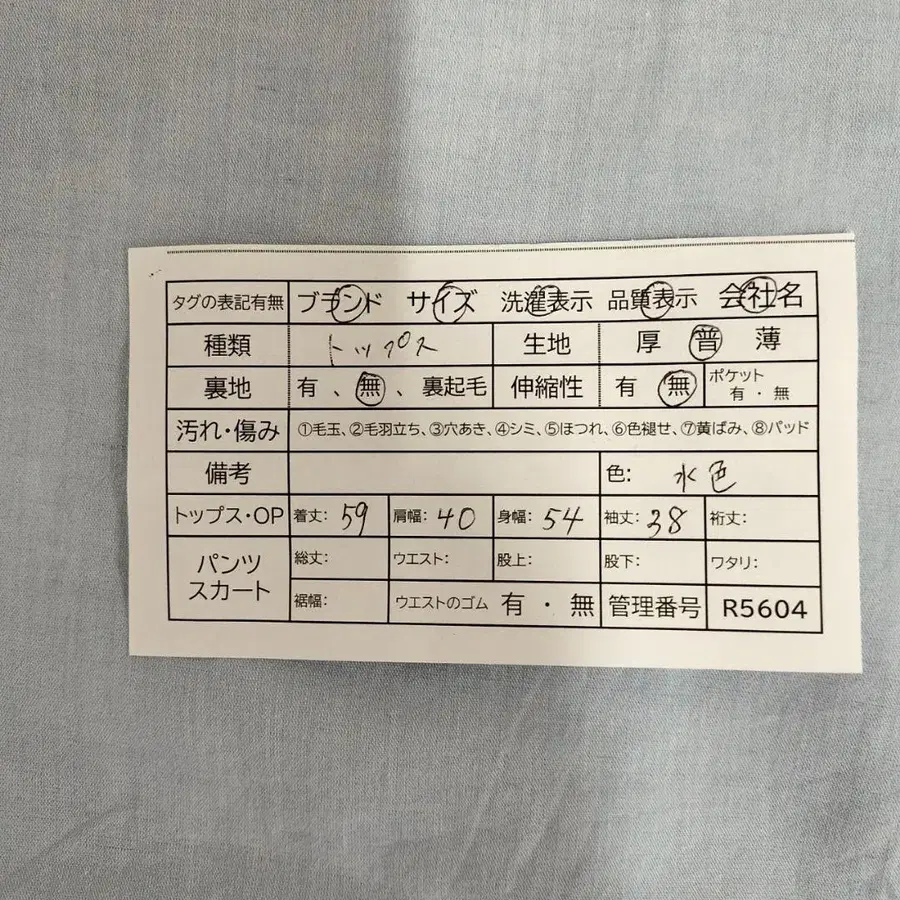 タグの表記有無 ブランド サイズ 洗濯表示 品質表示 会社名
種類 トップス 生地 厚 普 薄
裏地 有 、無 、裏起毛 伸縮性 有 無 ポケット 有・無
汚れ・傷み ①毛玉、②毛羽立ち、③穴あき、④シミ、⑤ほつれ、⑥色褪せ、⑦黄ばみ、⑧パッド
備考 色: 水色
トップス・OP 着丈: 59 肩幅: 40 身幅: 54 袖丈: 38 裄丈:
パンツ スカート 総丈: ウエスト: 股上: 股下: ワタリ:
裾幅: ウエストのゴム 有 ・ 無 管理番号 R5604